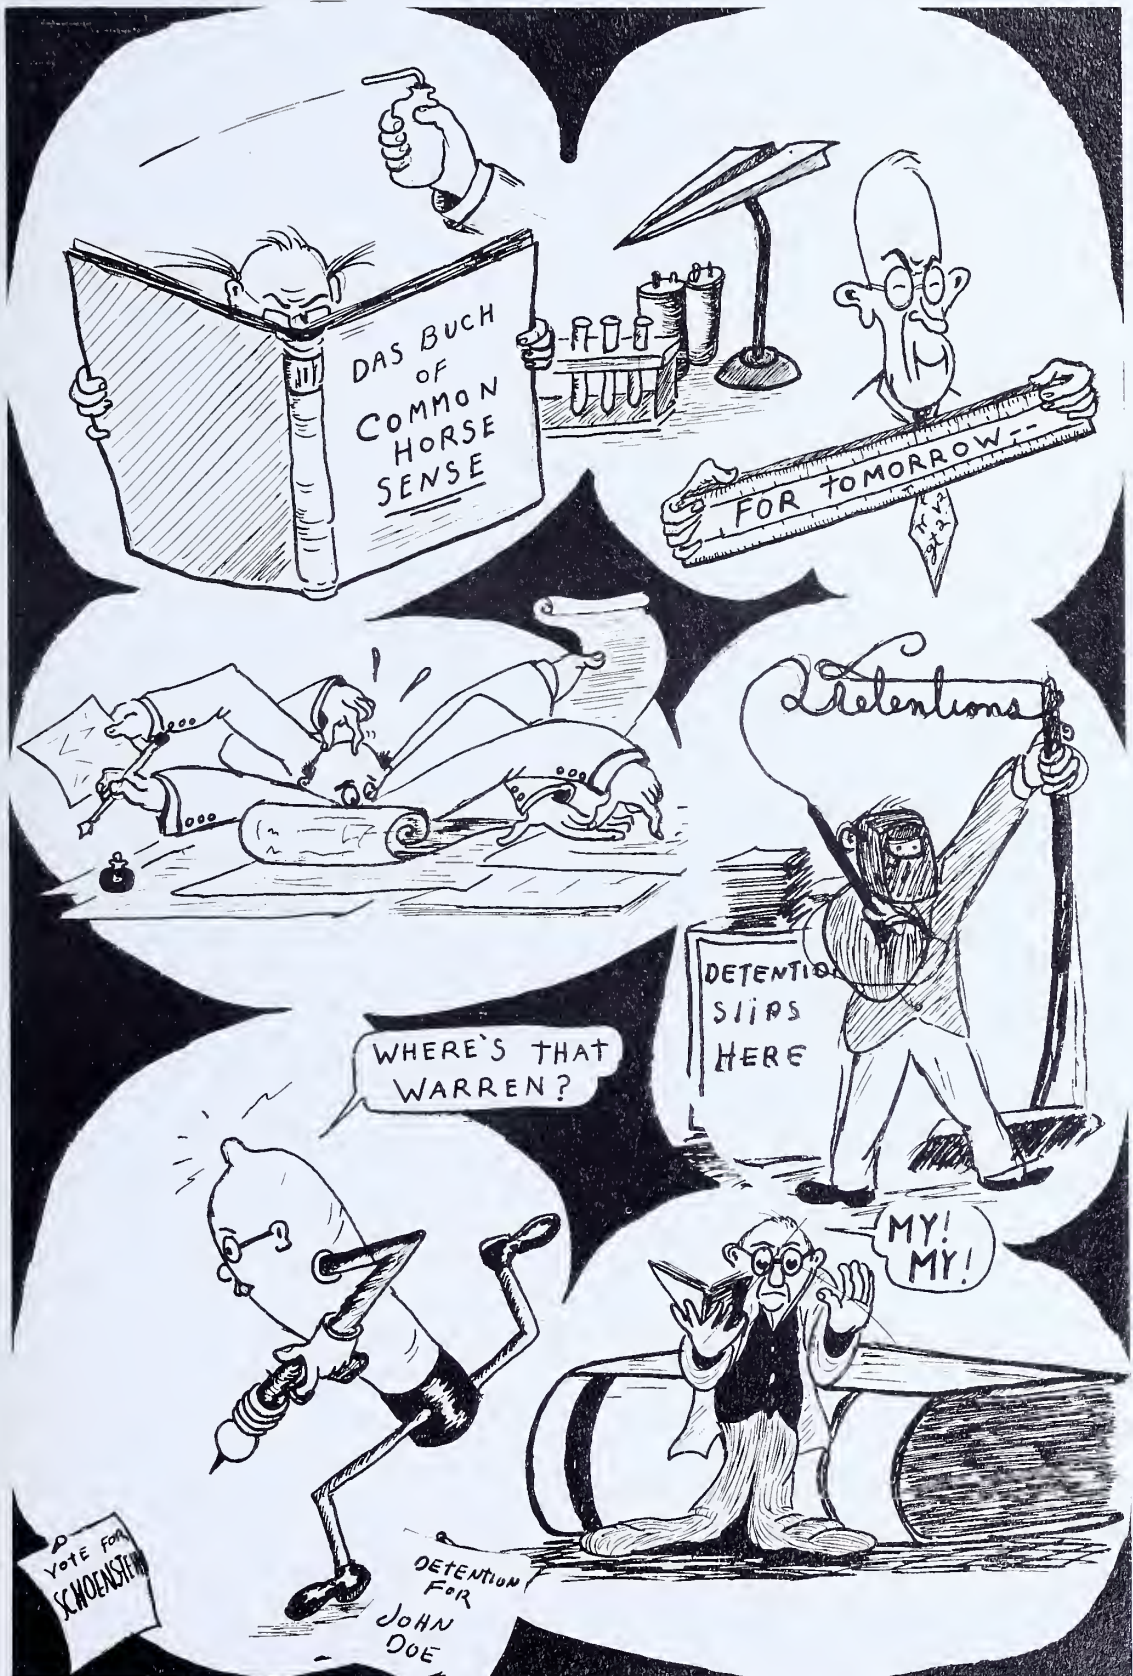 DAS BUCH
OF
COMMON
HORSE
SENSE
FOR TOMORROW--
Detentions
DETENTION
SLiPS
HERE
WHERE'S THAT
WARREN?
MY!
MY!
VOTE FOR
SCHOENSTEIN
DETENTION
FOR
JOHN
DOE